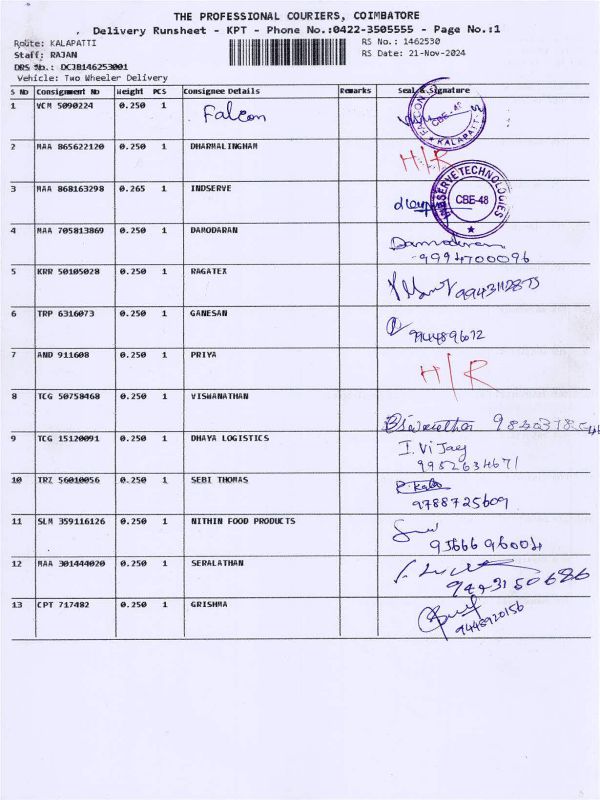 THE PROFESSIONAL COURIERS, COIMBATORE
Delivery Runsheet - KPT - Phone No.:0422-3505555 - Page No.:1
Route: KALAPATTI RS No.: 1462530
Staff: RAJAN RS Date: 21-Nov-2024
DRS No.: DCJB146253001
Vehicle: Two Wheeler Delivery
S No Consignment No Weight PCS Consignee Details Remarks Seal & Signature
1 VCM 5090224 0.250 1 Falcon FALCON CBE-48 KALAPATTI
2 MAA 865622120 0.250 1 DHARMALINGHAM H/R
3 MAA 868163298 0.265 1 INDSERVE INDSERVE TECHNOLOGIES CBE-48
4 MAA 705813869 0.250 1 DAMODARAN Damodaran
9994700096
5 KRR 50105028 0.250 1 RAGATEX
6 TRP 6316073 0.250 1 GANESAN
9944896072
7 AND 911608 0.250 1 PRIYA H/R
8 TCG 50758468 0.250 1 VISWANATHAN
9 TCG 15120091 0.250 1 DHAYA LOGISTICS I. Vijay
9952634671
10 TRZ 56010056 0.250 1 SEBI THOMAS
9788725609
11 SLM 359116126 0.250 1 NITHIN FOOD PRODUCTS
9566696004
12 MAA 301444020 0.250 1 SERALATHAN
9443150686
13 CPT 717482 0.250 1 GRISHMA
9448920156